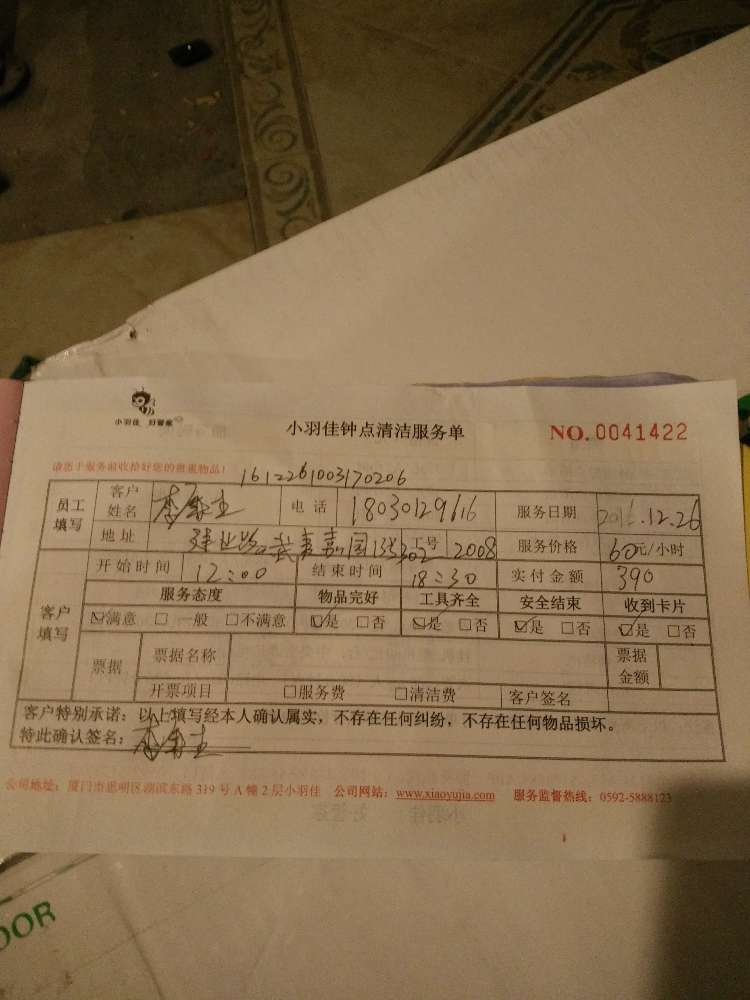 小羽佳 好管家
小羽佳钟点清洁服务单 NO. 0041422
请您于服务前收拾好您的贵重物品!
1612261003170206
员工填写 客户姓名 李 电话 18030129616 服务日期 2016.12.26
地址 工号 2008 服务价格 60元/小时
开始时间 12:00 结束时间 18:30 实付金额 390
客户填写 服务态度 物品完好 工具齐全 安全结束 收到卡片
☑满意 □一般 □不满意 ☑是 □否 ☑是 □否 ☑是 □否 ☑是 □否
票据 票据名称 票据金额
开票项目 □服务费 □清洁费 客户签名
客户特别承诺:以上填写经本人确认属实,不存在任何纠纷,不存在任何物品损坏。
特此确认签名:李
公司地址:厦门市思明区湖滨东路 319 号 A 幢 2 层小羽佳 公司网站:www.xiaoyujia.com 服务监督热线:0592-5888123
OOR